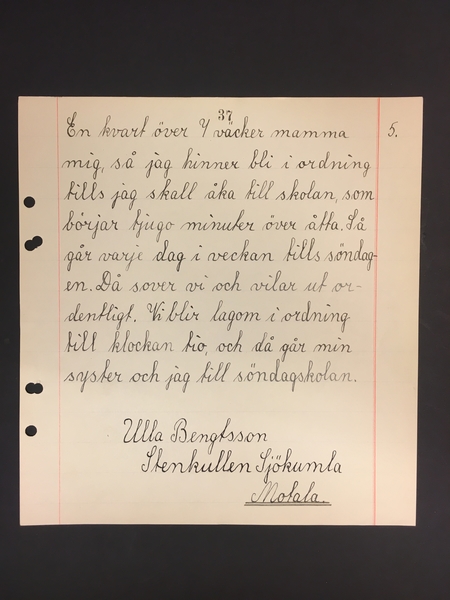 37
En kvart över 7 väcker mamma 5.
mig, så jag hinner bli i ordning
tills jag skall åka till skolan, som
börjar tjugo minuter över åtta. Så
går varje dag i veckan tills söndag-
en. Då sover vi och vilar ut or-
dentligt. Vi blir lagom i ordning
till klockan tio, och då går min
syster och jag till söndagskolan.
Ulla Bengtsson
Stenkullen Sjökumla
Motala.